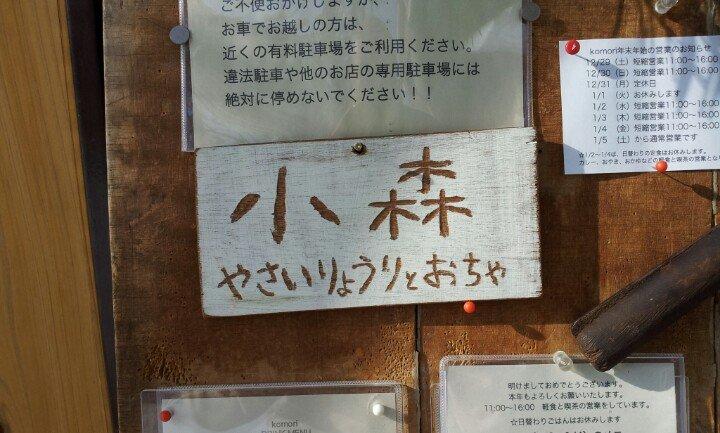 ご不便おかけしますが、
お車でお越しの方は、
近くの有料駐車場をご利用ください。
違法駐車や他のお店の専用駐車場には
絶対に停めないでください！！
komori年末年始の営業のお知らせ
12/29（土）短縮営業11:00～16:00
12/30（日）短縮営業11:00～16:00
12/31（月）定休日
1/1　（火）お休みします
1/2　（水）短縮営業11:00～16:00
1/3　（木）短縮営業11:00～16:00
1/4　（金）短縮営業11:00～16:00
1/5　（土）から通常営業です
☆1/2～1/4は、日替わりの定食はお休みします。
カレー、おやき、おかゆなどの軽食と喫茶の営業とな
小森
やさいりょうりとおちゃ
komori
明けましておめでとうございます。
本年もよろしくお願いいたします。
11:00～16:00　軽食と喫茶の営業をしています。
☆日替わりごはんはお休みします